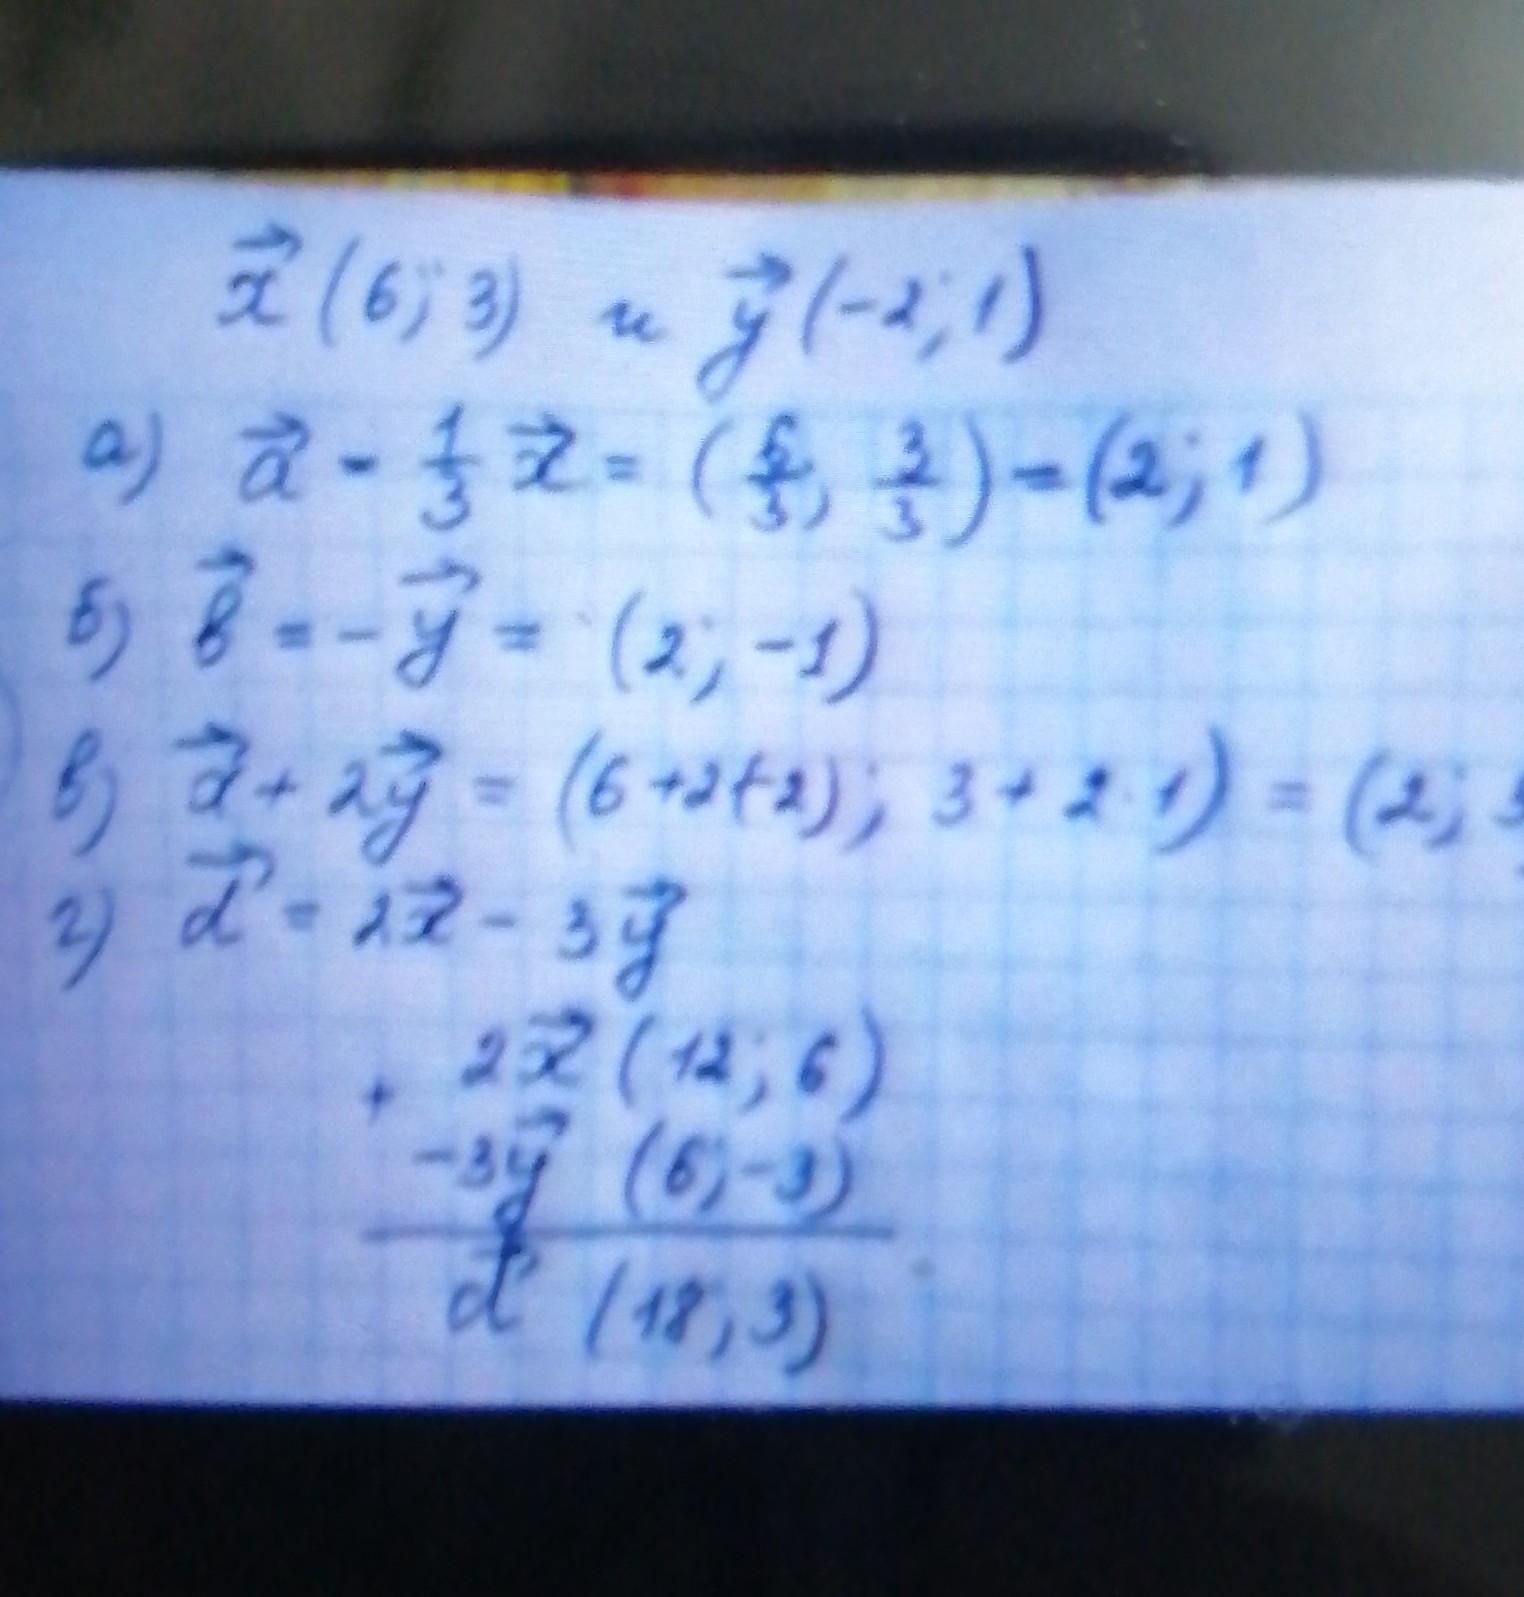 x⃗ (6; 3) и y⃗ (-2; 1)
а) a⃗ - 1/3 x⃗ = (6/3; 3/3) = (2; 1)
б) b⃗ = -y⃗ = (2; -1)
в) a⃗ + 2y⃗ = (6+2(-2); 3+2·1) = (2; 5
г) d⃗ = 2x⃗ - 3y⃗
+ 2x⃗ (12; 6)
-3y⃗ (6; -3)
d⃗ (18; 3)